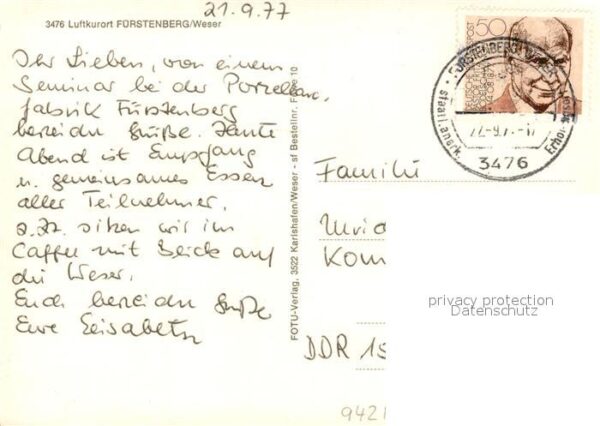 21.9.77
3476 Luftkurort FÜRSTENBERG/Weser
Ihr Lieben, von einem
Seminar bei der Porzellan,
fabrik Fürstenberg
Grüße. Heute
Abend ist Empfang
u. gemeinsames Essen
aller Teilnehmer.
z.Zt. sitzen wir im
Caffee mit Blick auf
die Weser.
Euch beiden Grüße
Eure Elisabeth
FOTU-Verlag, 3522 Karlshafen/Weser - sf Bestellnr. 10
50
FÜRSTENBERG, WESER
staatl. anerk.
Erho
3476
Familie
Kom
DDR 15
9421
privacy protection
Datenschutz